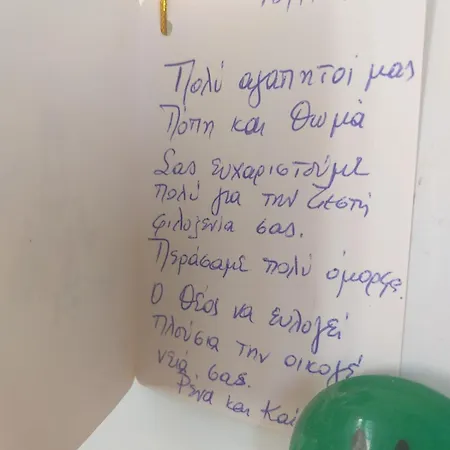 Πολύ αγαπητοί μας
Πόπη και Θωμά
Σας ευχαριστούμε
πολύ για την ζεστή
φιλοξενία σας.
Περάσαμε πολύ όμορφα.
Ο Θεός να ευλογεί
πλούσια την οικογέ
νειά σας.
Ρένα και